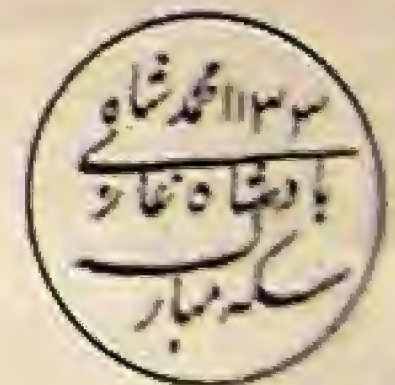 ۱۱۳۳ محمد شاه
بادشاه غازی
سکه مبارک